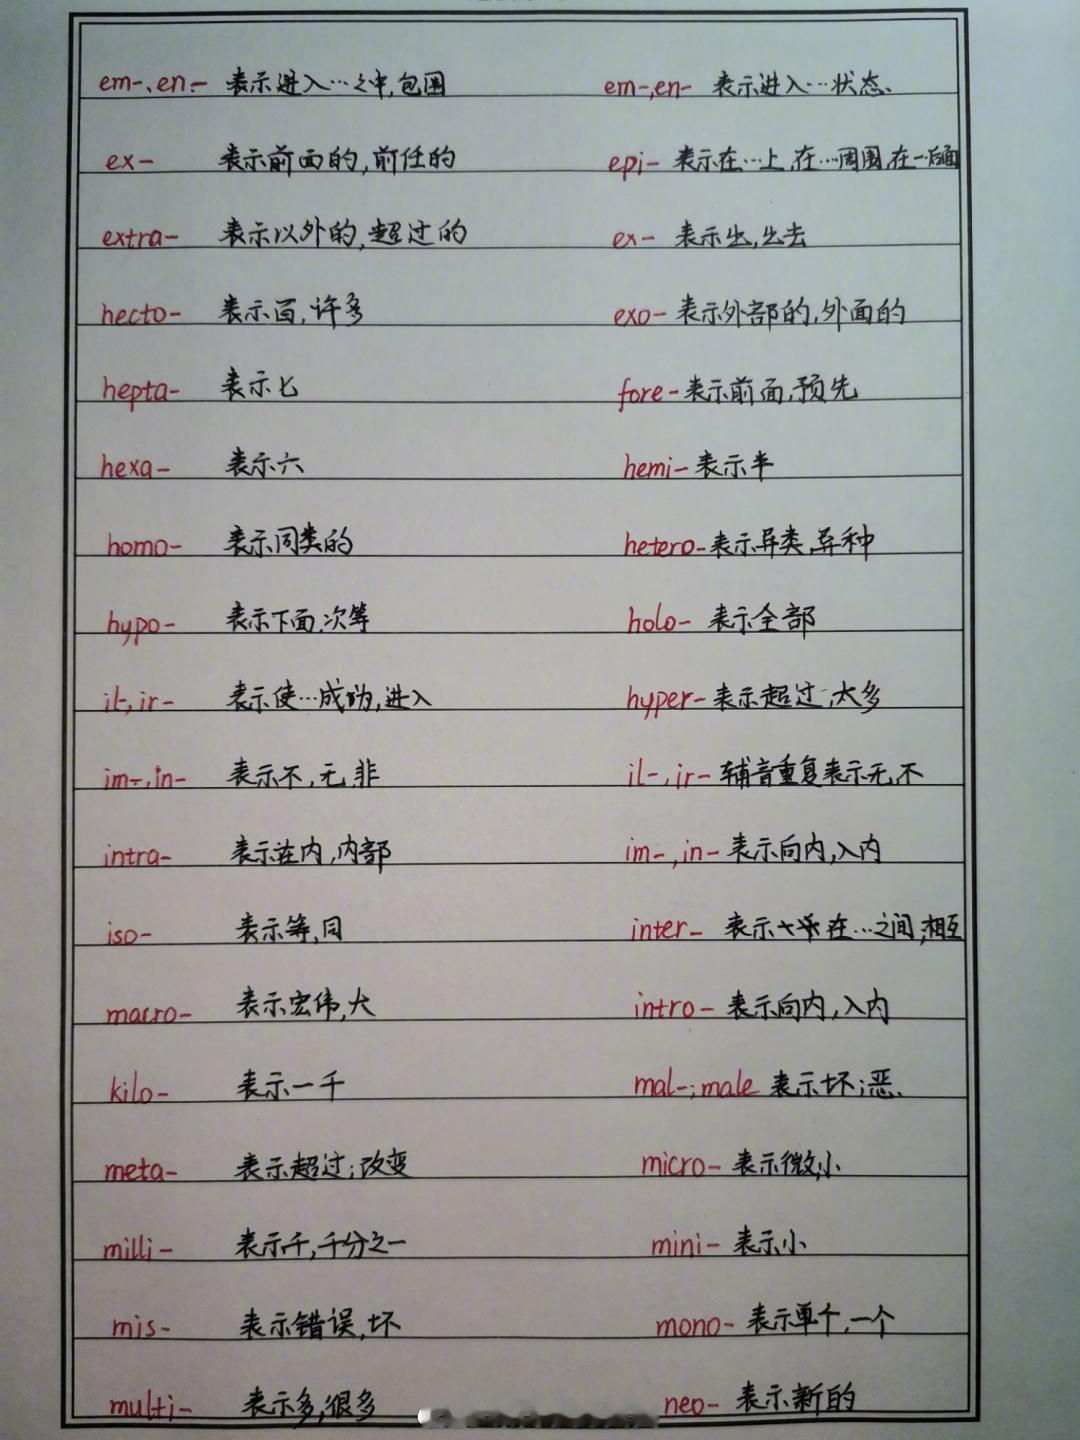 em-、en- 表示进入…之中,包围 em-,en- 表示进入…状态、
ex- 表示前面的,前任的 epi- 表示在…上,在…周围,在…后面
extra- 表示以外的,超过的 ex- 表示出,出去
hecto- 表示百,许多 exo- 表示外部的,外面的
hepta- 表示七 fore- 表示前面,预先
hexa- 表示六 hemi- 表示半
homo- 表示同类的 hetero- 表示异类,异种
hypo- 表示下面,次等 holo- 表示全部
il-,ir- 表示使…成为,进入 hyper- 表示超过;太多
im-,in- 表示不,无,非 il-,ir- 辅音重复表示无,不
intra- 表示在内,内部 im-,in- 表示向内,入内
iso- 表示等,同 inter- 表示在…之间,相互
macro- 表示宏伟,大 intro- 表示向内,入内
kilo- 表示一千 mal-;male 表示坏;恶、
meta- 表示超过;改变 micro- 表示微,小
milli- 表示千,千分之一 mini- 表示小
mis- 表示错误,坏 mono- 表示单个,一个
multi- 表示多,很多 neo- 表示新的